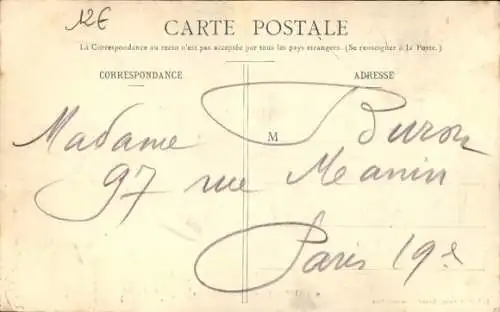 12€
CARTE POSTALE
La Correspondance au recto n'est pas acceptée par tous les pays étrangers. (Se renseigner à la Poste.)
CORRESPONDANCE
ADRESSE
M
Madame Buron
97 rue Meanin
Paris 19e